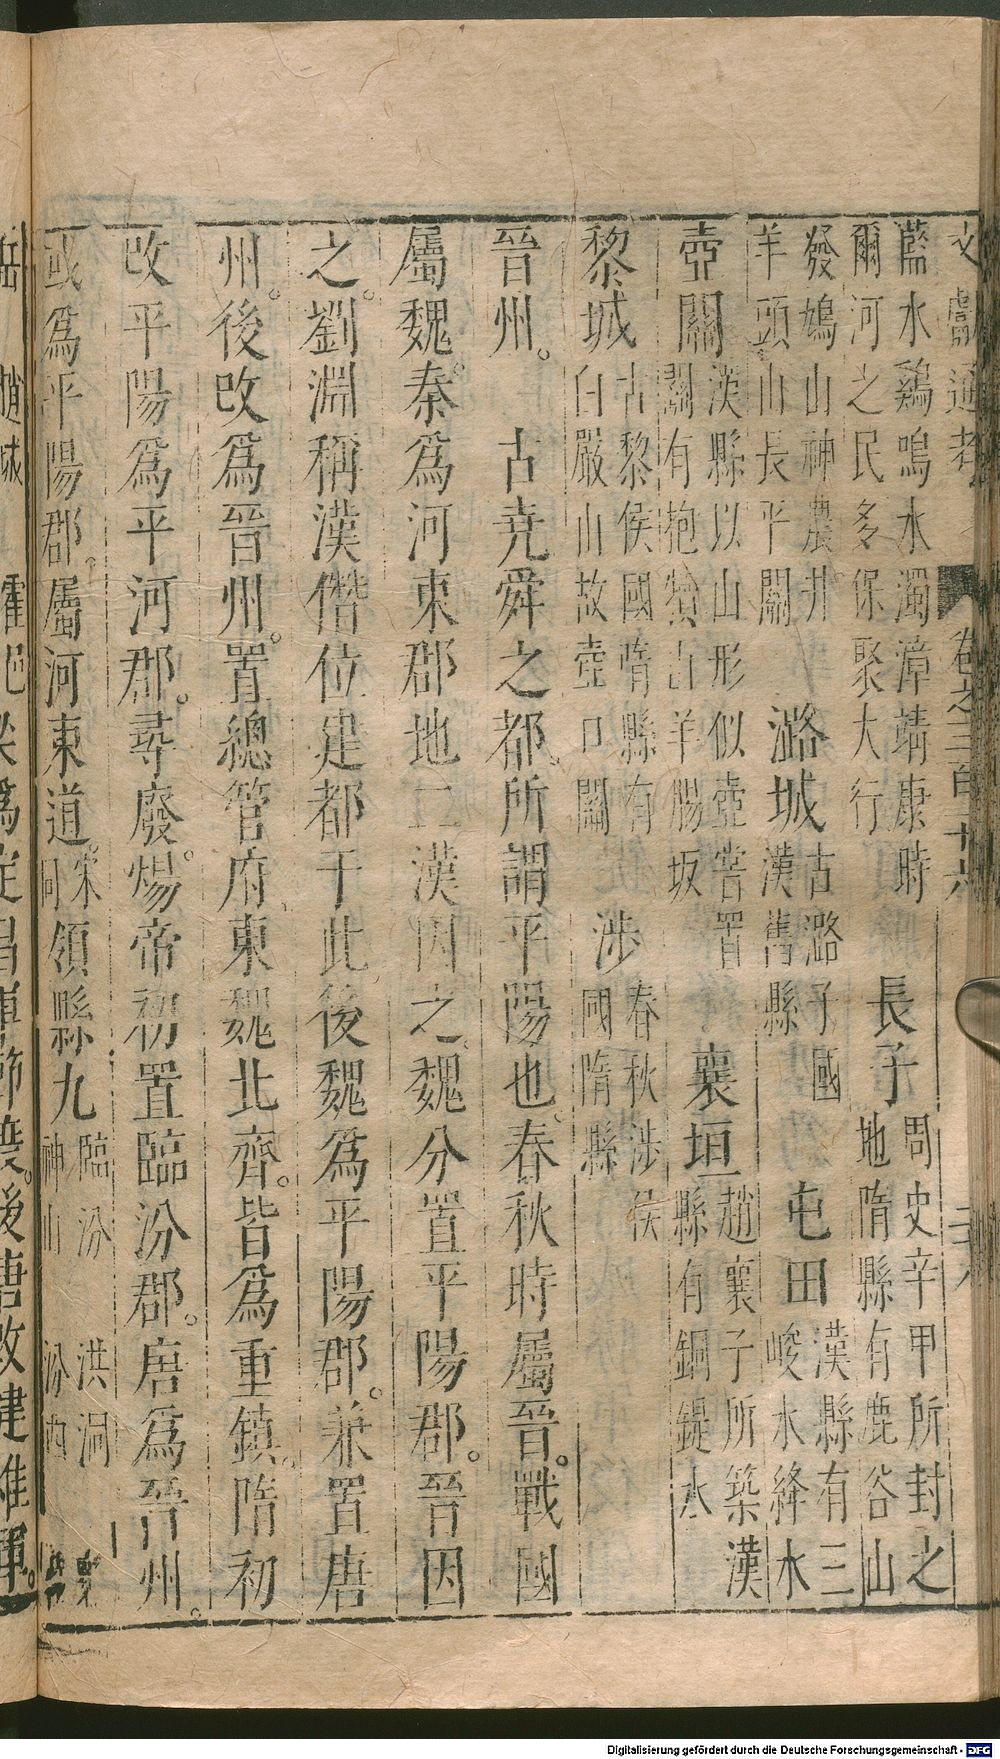 文獻通考 卷之三百十六
藍水鷄鳴水濁漳靖康時
爾河之民多保聚大行
長子
周史辛甲所封之
地隋縣有鹿谷山
發鳩山神農井
羊頭山長平關
潞城
古潞子國
漢舊縣
屯田
漢縣有三
峻水絳水
壺關
漢縣以山形似壺嘗置
關有抱犢山羊腸坂
襄垣
趙襄子所築漢
縣有銅鍉水
黎城
古黎侯國隋縣有
白巖山故壺口關
涉
春秋涉侯
國隋縣
晉州。古堯舜之都。所謂平陽也。春秋時屬晉。戰國
屬魏。秦爲河東郡地二漢因之。魏分置平陽郡。晉因
之。劉淵稱漢僭位建都于此。後魏爲平陽郡。兼置唐
州。後改爲晉州。置總管府東魏北齊。皆爲重鎮。隋初
改平陽爲平河郡。尋廢。煬帝初置臨汾郡。唐爲晉州。
或爲平陽郡。屬河東道。宋同領縣九
臨汾 洪洞
神山 汾西
岳 趙城 霍邑 梁爲定昌軍節度。後唐改建雄軍。
Digitalisierung gefördert durch die Deutsche Forschungsgemeinschaft - DFG